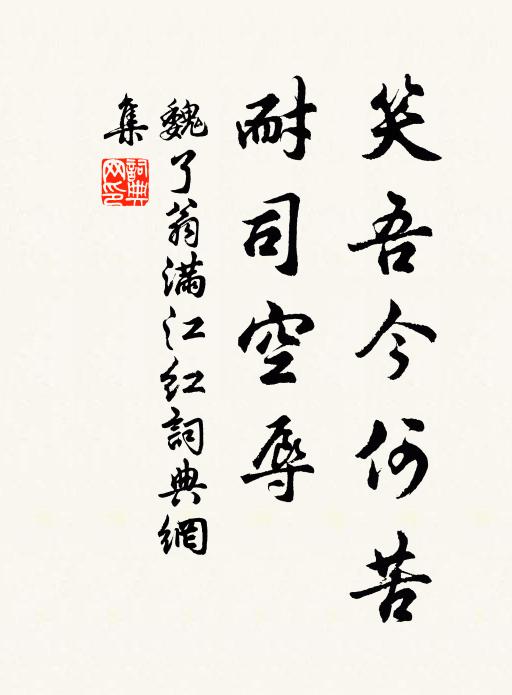 笑吾今何苦
耐司空辱
魏了翁满江红詞典網
集
詞典网印